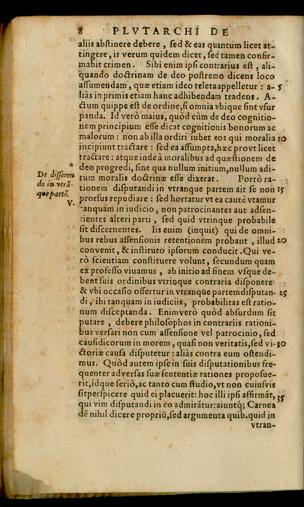 8 PLVTARCHI DE
aliis abstinere debere, sed & eas quantum licet at-
tingere, is verum quidem dicet, sed tamen confir-
mabit crimen. Sibi enim ipsi contrarius est, ali-
quando doctrinam de deo postremo dicens loco
assumendam, que etiam ideo teleta appelletur: a- 5
liàs in primis etiam hanc adhibendam tradens. A-
ctum quippe est de ordine, si omnia vbique sint vsur
panda. Id verò maius, quòd cùm de deo cognitio-
nem principium esse dicat cognitionis bonorum ac
malorum: non ab illa ordiri iubet eos qui moralia 10
incipiunt tractare: sed ea assumpta, hæc provt licet
tractare: atque inde à moralibus ad quæstionem de
deo progredi, sine qua nullum initium, nullum adi-
tum moralis doctrinæ esse dixerat. Porrò ra-
De differen
do in vtrā-
que partē.
tionem disputandi in vtranque partem ait se non 15
prorsus repudiare: sed hortatur vt ea cautè vtamur
V.
tanquàm in iudicio, non patrocinantes aut adsen-
tientes alteri parti, sed quid vtrinque probabile
sit discernentes. Iis enim (inquit) qui de omni-
bus rebus assensionis retentionem probant, illud 20
convenit, & institutum ipsorum conducit. Qui ve-
rò scientiam constituere volunt, secundum quam
ex professo viuamus, ab initio ad finem vsque de-
bent suis ordinibus vtrinque contraria disponere:
& vbi occasio offertur in vtranque partem disputan- 25
di, ibi tanquam in iudiciis, probabilitas est ratio-
num disceptanda. Enimverò quòd absurdum sit
putare, debere philosophos in contrariis rationi-
bus versari non cum assensione vel patrocinio, sed
causidicorum in morem, quasi non veritatis, sed vi- 30
ctoriæ causa disputetur: aliàs contra eum ostendi-
mus. Quòd autem ipse in suis disputationibus fre-
quenter adversas suæ sententiæ rationes proposue-
rit, idque seriò, ac tanto cum studio, vt non cuiusvis
sit perspicere quid ei placuerit: hoc illi ipsi affirmāt, 35
qui vim disputandi in eo admirātur: aiuntq́; Carnea
dē nihil dicere propriū, sed argumenta quib. quid in
vtran-